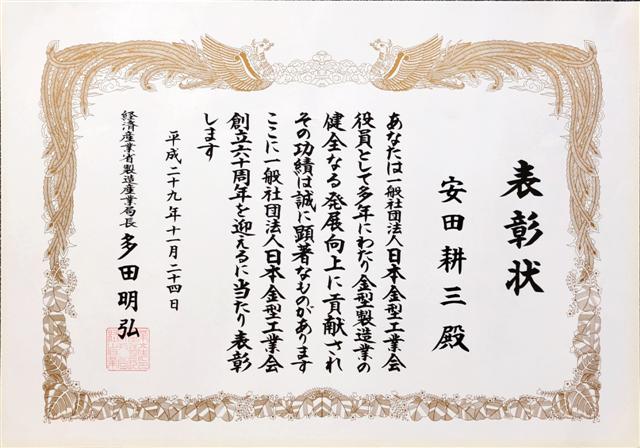 表彰状
安田耕三殿
あなたは一般社団法人日本金型工業会
役員として多年にわたり金型製造業の
健全なる発展向上に貢献され
その功績は誠に顕著なものがあります
ここに一般社団法人日本金型工業会
創立六十周年を迎えるに当たり表彰
します
平成二十九年十一月二十四日
経済産業省製造産業局長 多田明弘